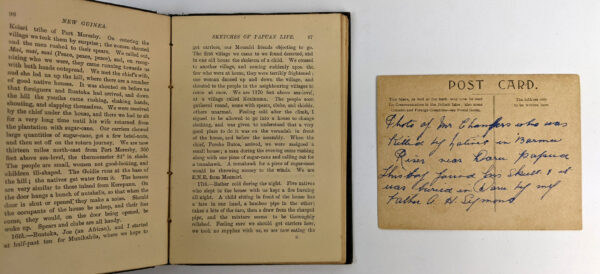 96
NEW GUINEA.
Koiari tribe of Port Moresby. On entering the
village we took them by surprise; the women shouted
and the men rushed to their spears. We called out,
Mai, mai, mai (Peace, peace, peace), and, on recog-
nizing who we were, they came running towards us
with both hands outspread. We met the chief's wife,
and she led us up the hill, where there are a number
of good native houses. It was shouted on before us
that foreigners and Boutaka had arrived, and down
the hill the youths came rushing, shaking hands,
shouting, and slapping themselves. We were received
by the chief under the house, and there we had to sit
for a very long time until his wife returned from
the plantation with sugar-cane. Our carriers chewed
large quantities of sugar-cane, got a few betel-nuts,
and then set off on the return journey. We are now
thirteen miles north-east from Port Moresby, 360
feet above sea-level, the thermometer 84° in shade.
The people are small, women not good-looking, and
children ill-shaped. The Goldie runs at the base of
the hill; the natives get water from it. The houses
are very similar to those inland from Kerepunu. On
the door hangs a bunch of nutshells, so that when the
door is shut or opened they make a noise. Should
the occupants of the house be asleep, and their foes
come, they would, on the door being opened, be
woke up. Spears and clubs are all hardy.
16th.—Ruatoka, Joe (an African), and I started
at half-past ten for Munikahila, where we hope to
SKETCHES OF PAPUAN LIFE.
97
get carriers, our Moumiri friends objecting to go.
The first village we came to we found deserted, and
in one old house the skeleton of a child. We crossed
to another village, and coming suddenly upon the
few who were at home, they were terribly frightened;
one woman danced up and down the village, and
shouted to the people in the neighbouring villages to
come at once. We are 1170 feet above sea-level,
at a village called Keninumu. The people soon
gathered round, some with spears, clubs, and shields,
others unarmed. Feeling cold after the climb, I
signed to be allowed to go into a house to change
clothing, and was given to understand that a very
good place to do it was on the verandah in front
of the house, and before the assembly. When the
chief, Poroko Butuo, arrived, we were assigned a
small house; a man during the evening came rushing
along with one piece of sugar-cane and calling out for
a tomahawk. A tomahawk for a piece of sugar-cane
would be throwing money to the winds. We are
E.N.E. from Moumiri.
17th.—Rather cold during the night. Five natives
who slept in the house with us kept a fire burning
all night. A child sitting in front of the house has
a taro in one hand, a bamboo pipe in the other;
takes a bite of the taro, then a draw from the charged
pipe, and the mixture seems to be thoroughly
relished. Feeling sure we should get carriers here,
we took no supplies with us, so are now eating the
POST CARD.
Photo of Mr Chamlers who was
killed by natives in
River near Daru Papua
This boy found his skull & it
was buried in Daru by my
Father A. H. Symons